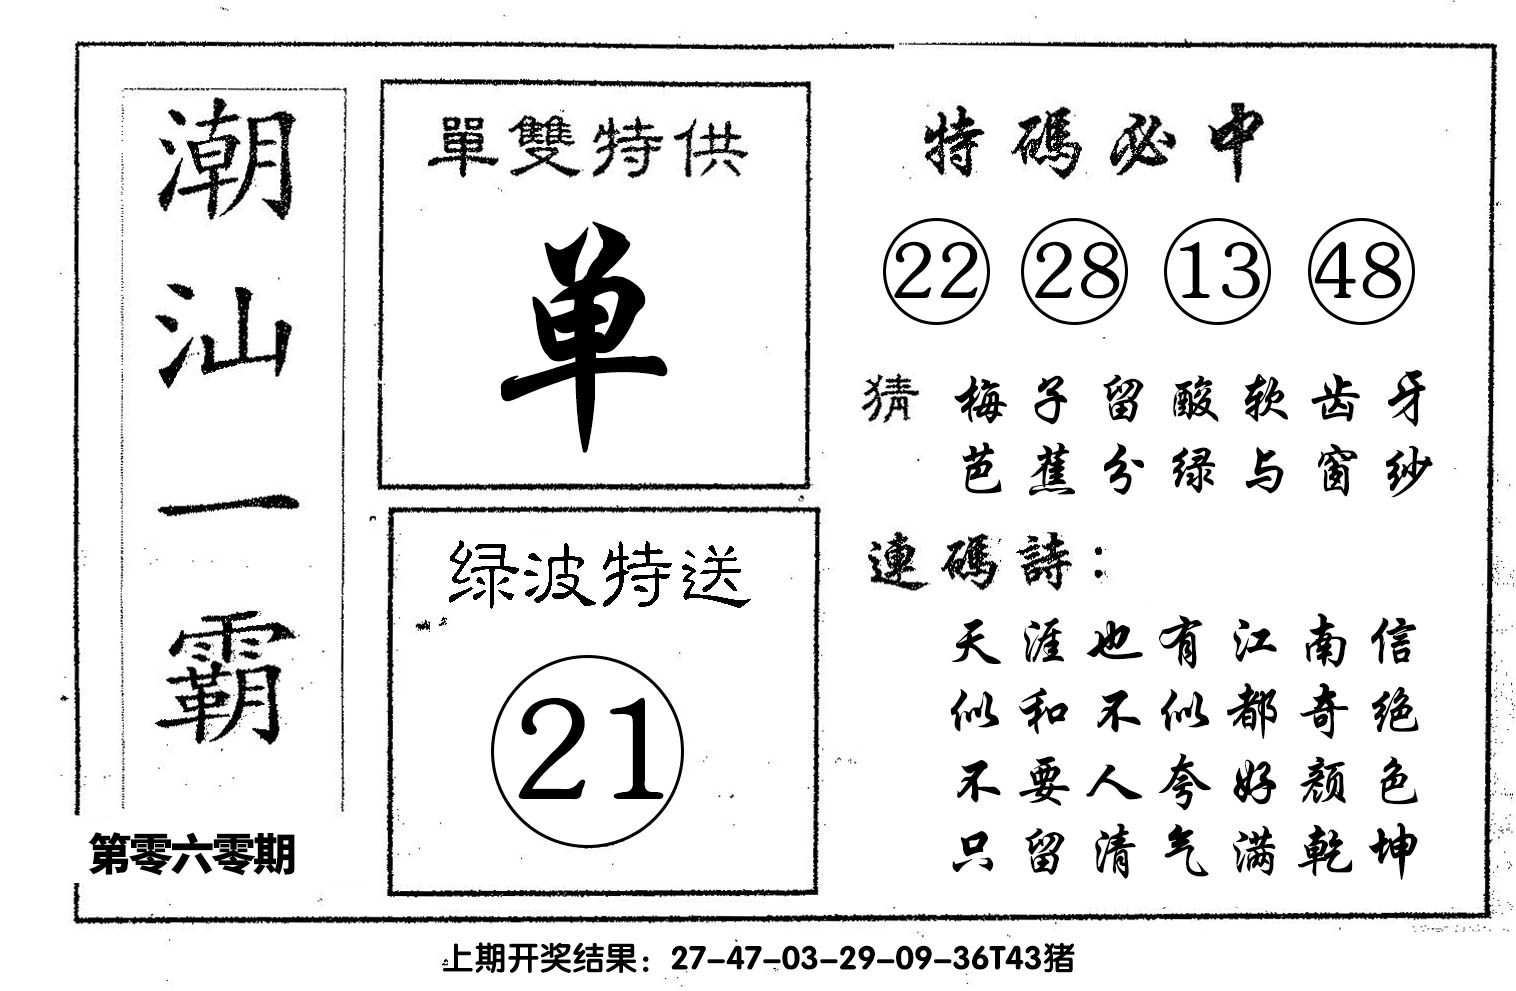 潮汕一霸
第零六零期
單雙特供
单
绿波特送
21
特碼必中
22 28 13 48
猜 梅子留酸软齿牙
芭蕉分绿与窗纱
連碼詩：
天涯也有江南信
似和不似都奇绝
不要人夸好颜色
只留清气满乾坤
上期开奖结果：27-47-03-29-09-36T43猪